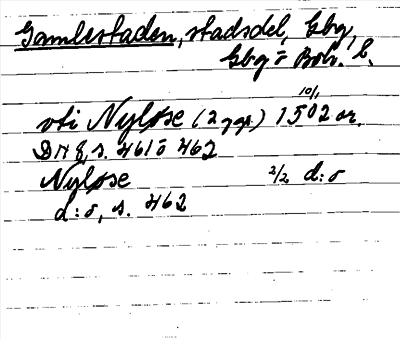 Gamlestaden, stadsdel, Gbg,
Gbg o Boh. l.
vti Nyløse (2 ggr) 10/1 1502 or.
DN 8, s. 461 o 462
Nyløse 2/2 d:o
d:o, s. 462